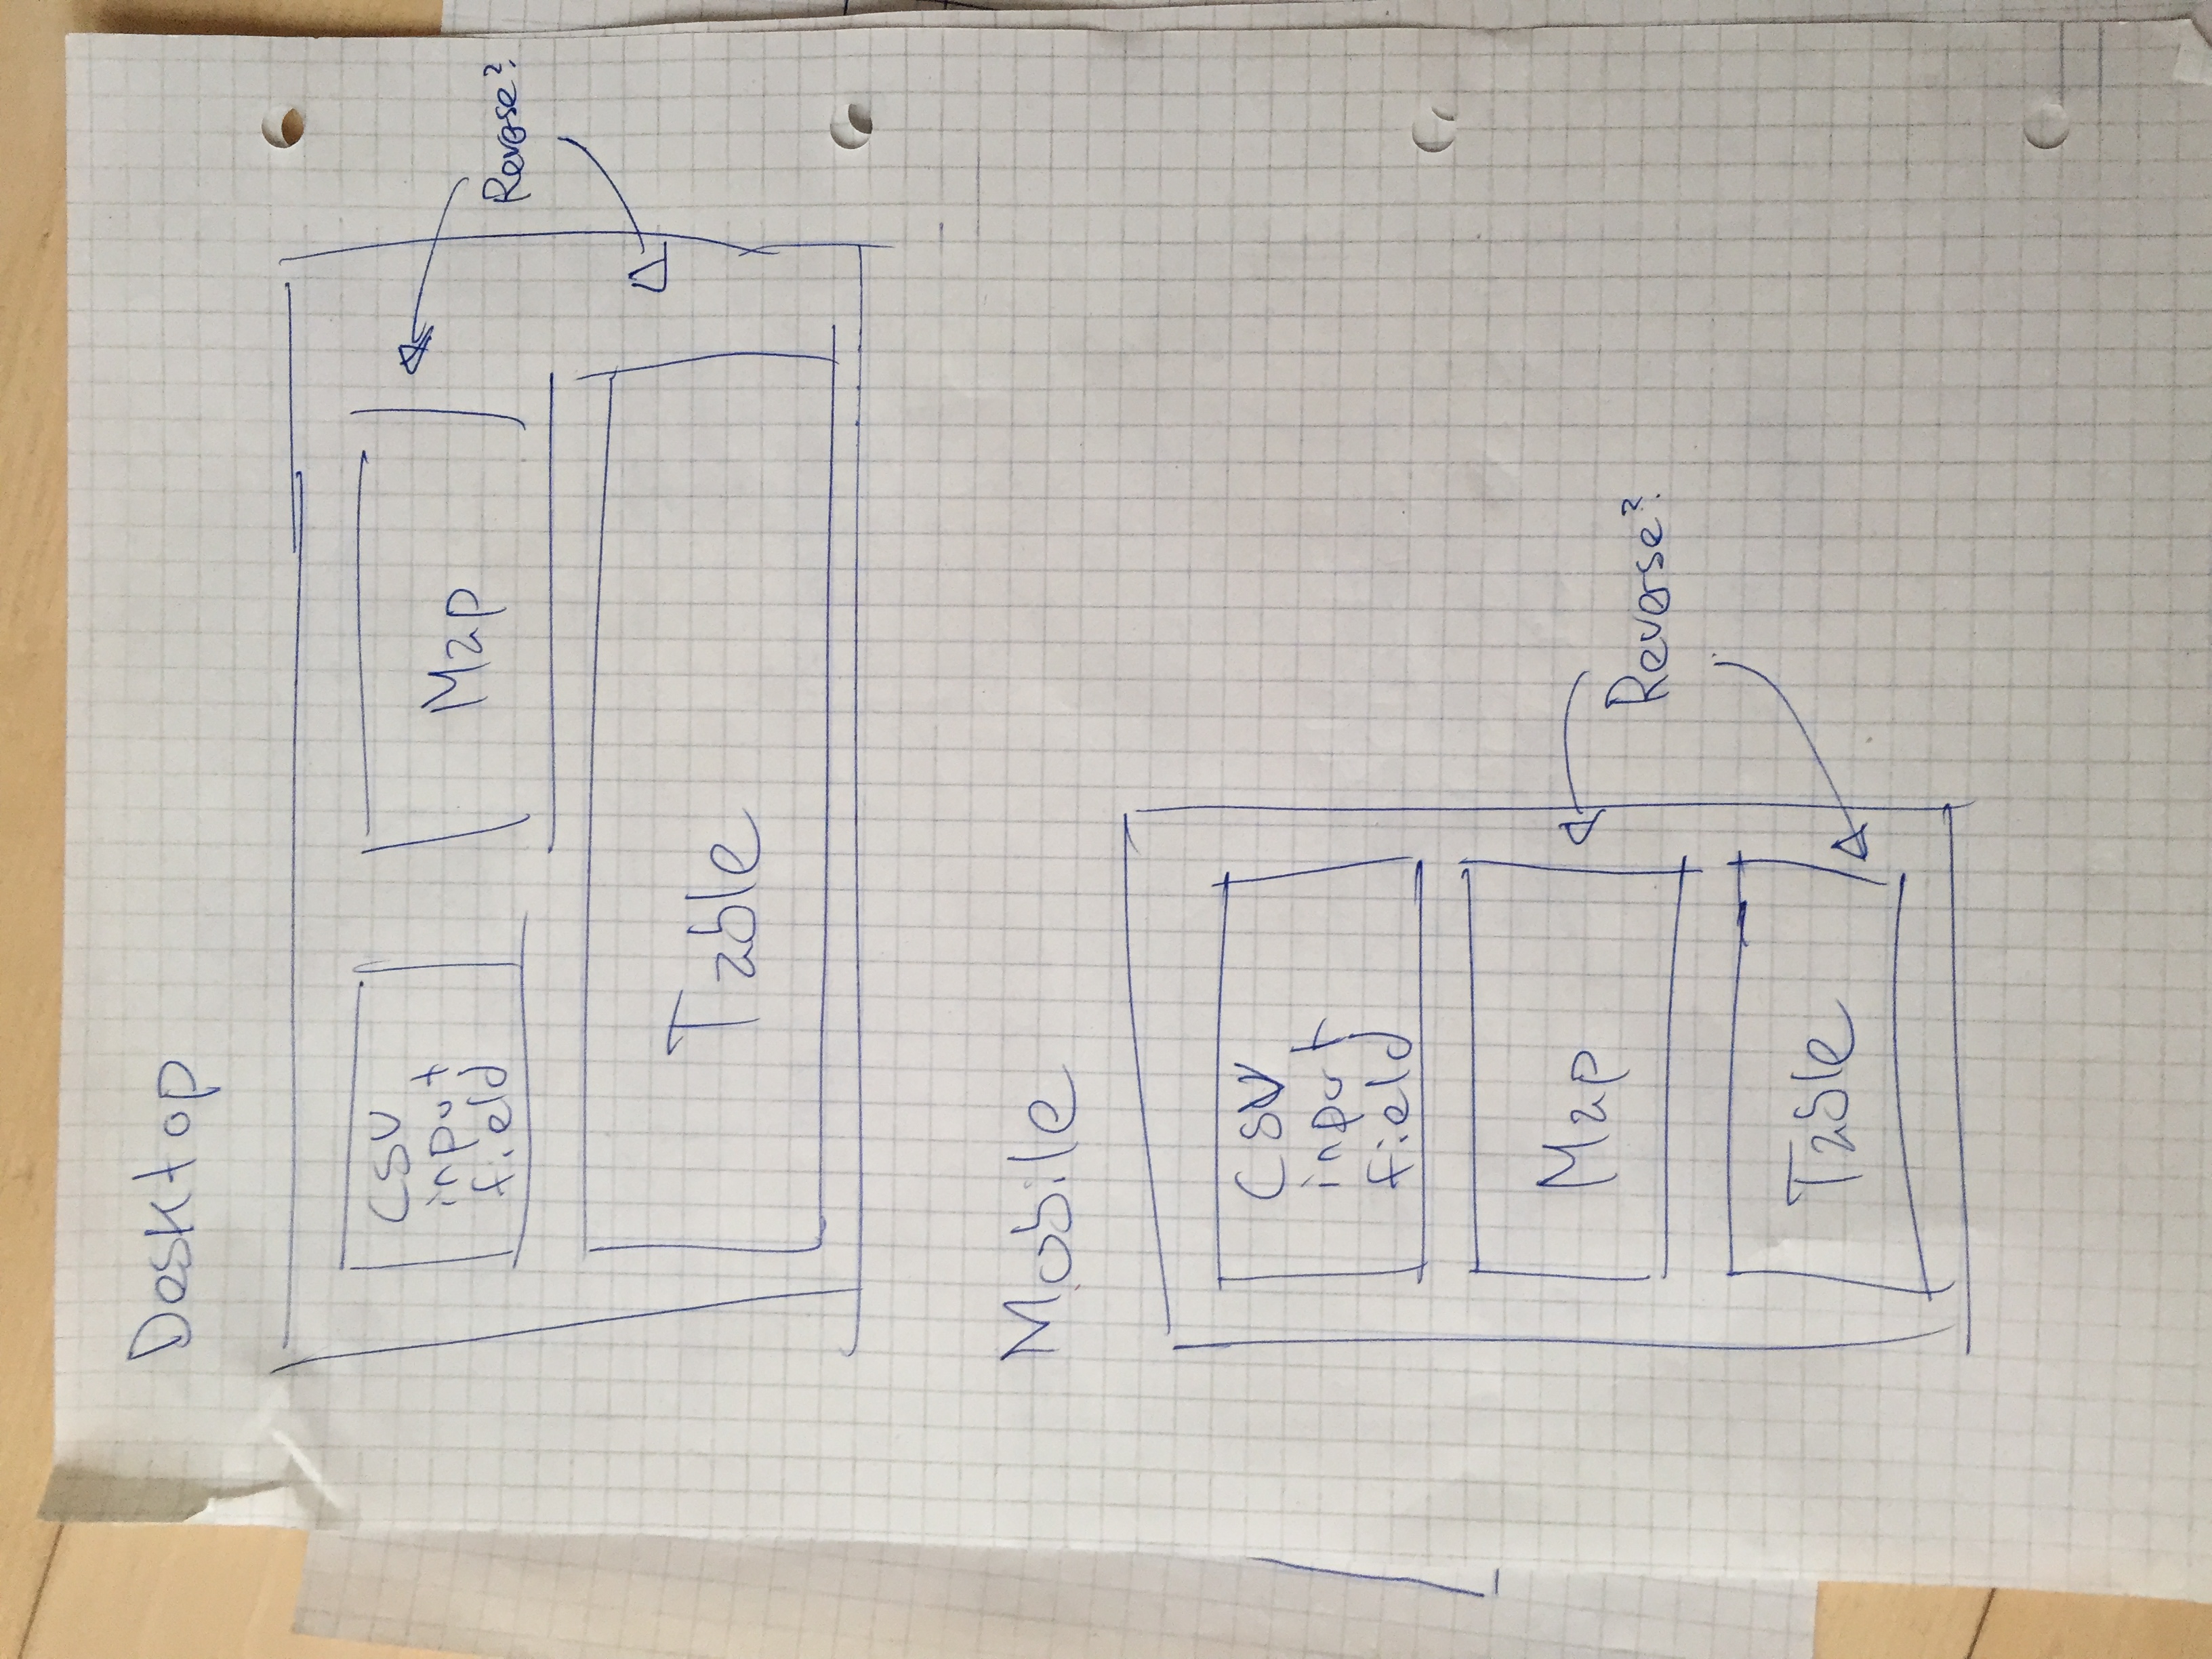 Desktop
CSV
input
field
Map
Reverse?
Table
Mobile
CSV
input
field
Map
Reverse?
Table